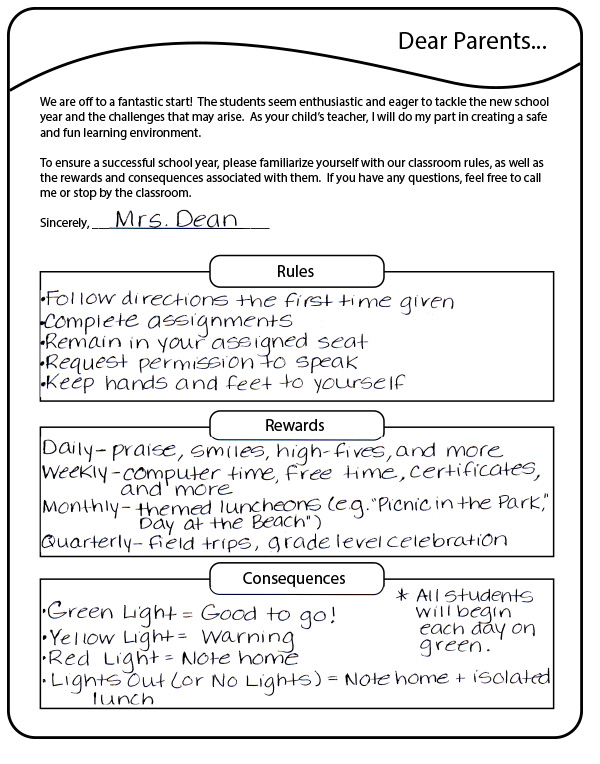 Dear Parents...
We are off to a fantastic start!  The students seem enthusiastic and eager to tackle the new school
year and the challenges that may arise.  As your child's teacher, I will do my part in creating a safe
and fun learning environment.
To ensure a successful school year, please familiarize yourself with our classroom rules, as well as
the rewards and consequences associated with them.  If you have any questions, feel free to call
me or stop by the classroom.
Sincerely, Mrs. Dean
Rules
•Follow directions the first time given
•Complete assignments
•Remain in your assigned seat
•Request permission to speak
•Keep hands and feet to yourself
Rewards
Daily- praise, smiles, high-fives, and more
Weekly-computer time, free time, certificates,
and more
Monthly- themed luncheons (e.g. "Picnic in the Park,"
Day at the Beach")
Quarterly- field trips, grade level celebration
Consequences
•Green Light = Good to go!
•Yellow Light = Warning
•Red Light = Note home
•Lights Out (or No Lights) = Note home + isolated
lunch
* All students
will begin
each day on
green.